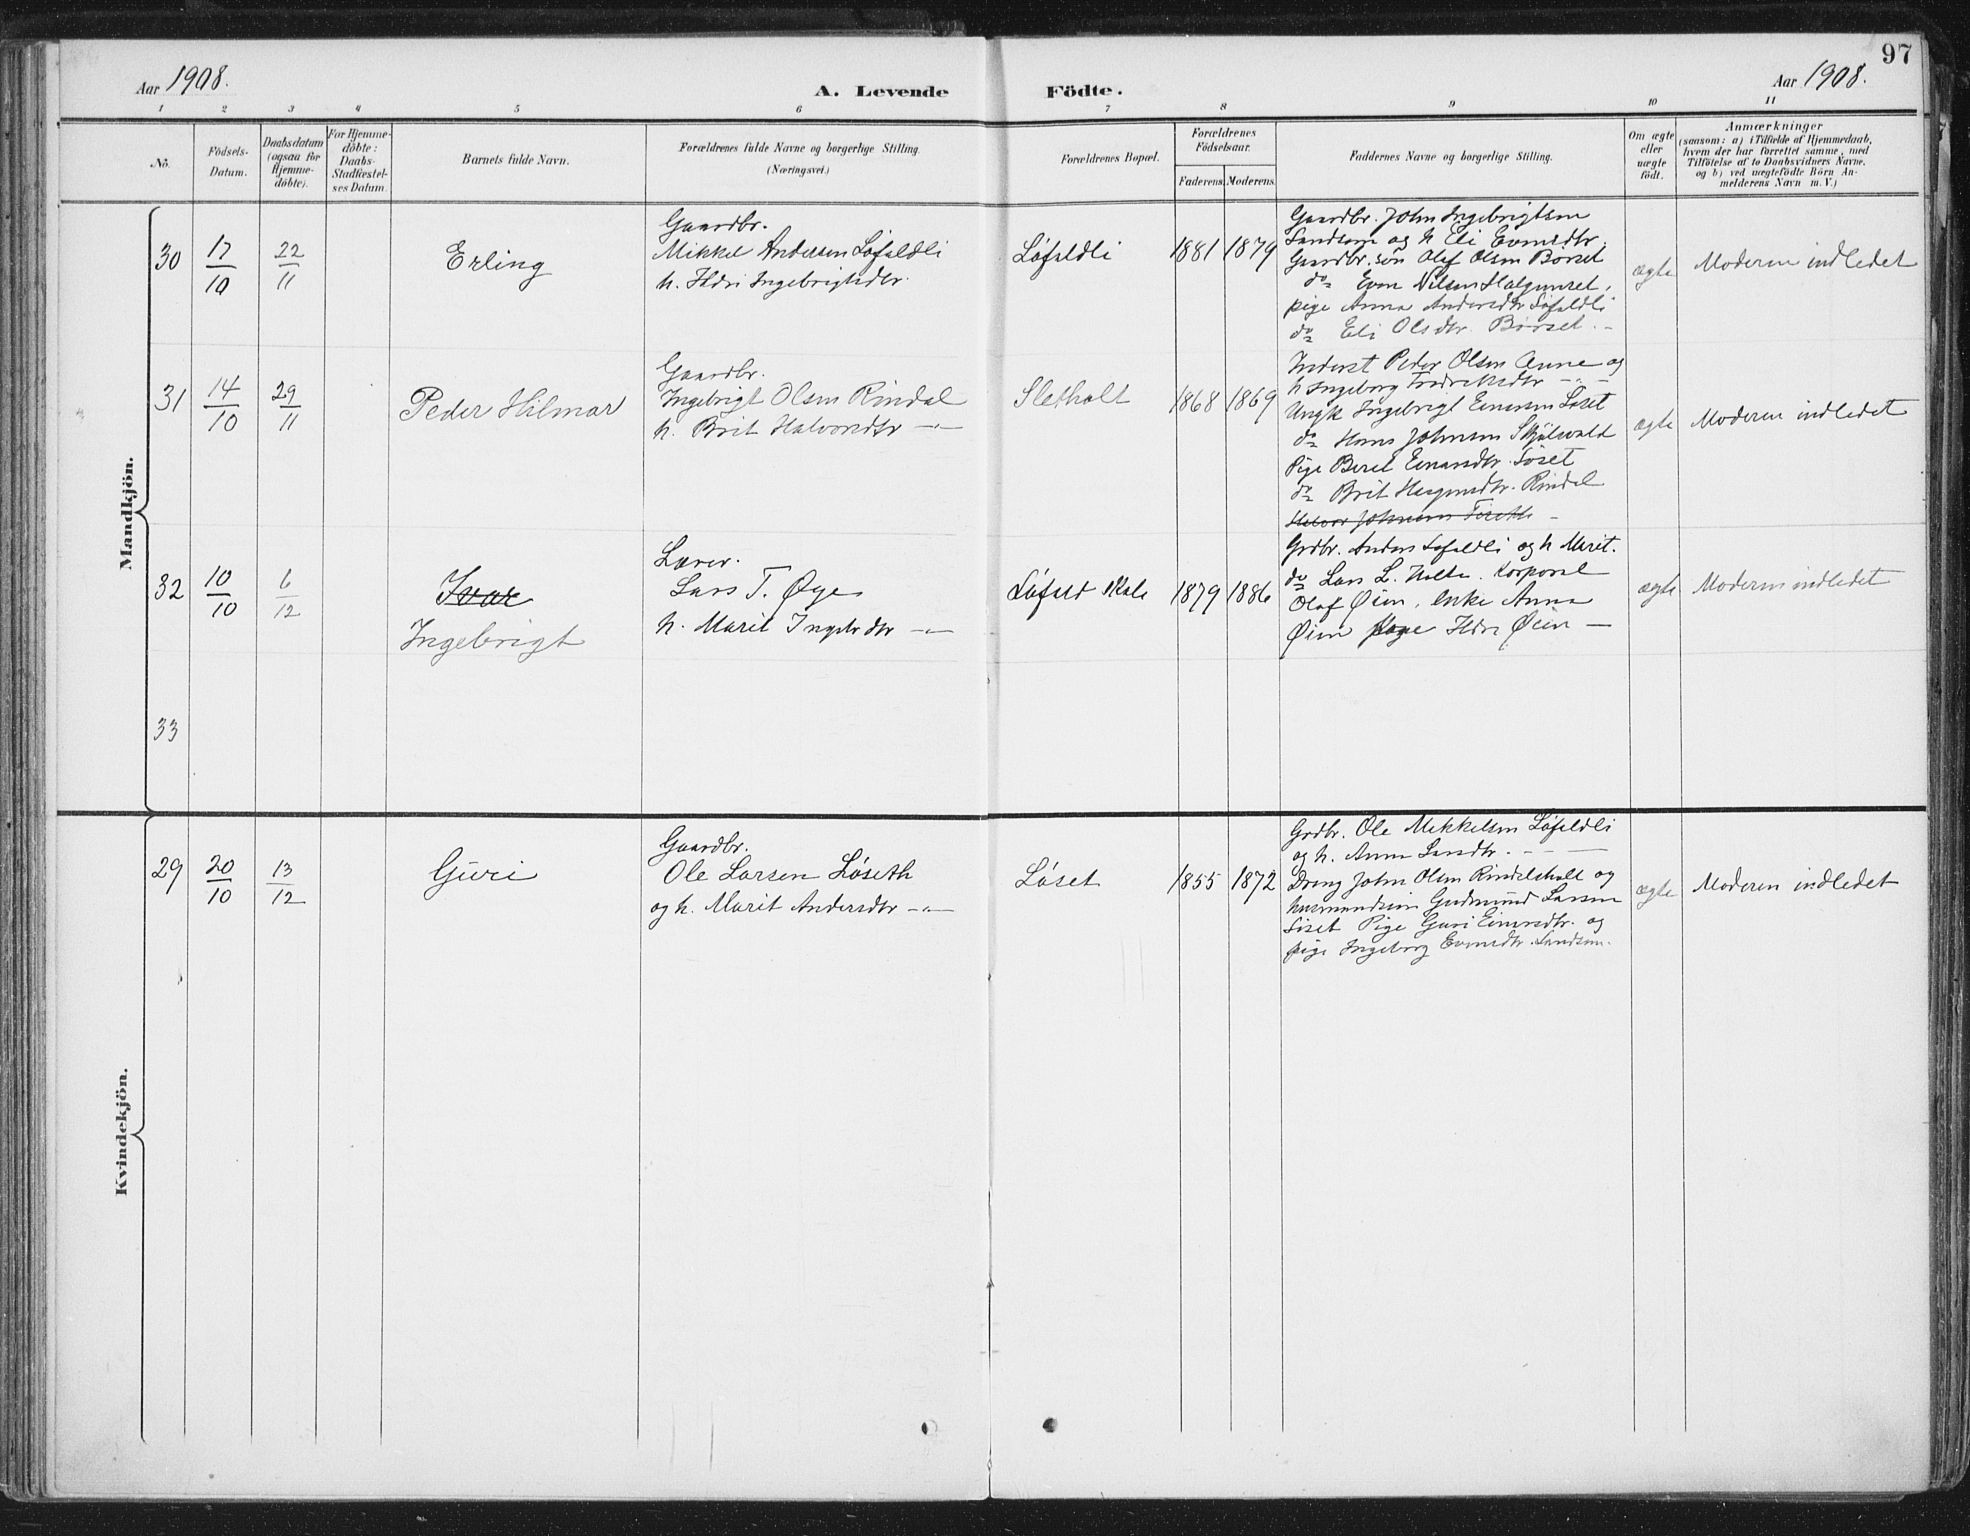 97
Aar 1908.
A. Levende Födte.
Aar 1908.
1 2 3 4 5 6 7 8 9 10 11
No.
Födsels-
Datum.
Daabsdatum
(ogsaa for
Hjemme-
döbte).
For Hjemme-
döbte:
Daabs-
Stadfæstel-
ses Datum.
Barnets fulde Navn.
Forældrenes fulde Navne og borgerlige Stilling.
(Næringsvei.)
Forældrenes Bopæl.
Forældrenes
Födselsaar.
Faderens. Moderens.
Faddernes Navne og borgerlige Stilling.
Om ægte
eller
uægte
födt.
Anmærkninger
(saasom: a) i Tilfælde af Hjemmedaab,
hvem der har forrettet samme, med
Tilföielse af to Daabsvidners Navne,
og b) ved uægtefödte Börn An-
melderens Navn m. V.)
Mandkjön.
30
17/10
22/11
Erling
Gaardbr.
Mikkel Andersen Løfaldli
h. Ildri Ingebrigtsdtr.
Løfaldli
1881 1879
Gaardbr. John Ingebrigtsen
Sandsom og h Eli Evensdtr.
Gaardbr. søn Olaf Olsen Børset
do Even Nilsen Halgunset,
pige Anna Andersdtr Løfaldli
do Eli Olsdtr. Børset. -
ægte
Moderen indledet
31
14/10
29/11
Peder Hilmar
Gaardbr.
Ingebrigt Olsen Rindal
h. Brit Halvorsdtr -"-
Sletholt
1868 1869
Inderst Peder Olsen Aune og
h Ingeborg Fredriksdtr -"-
Ungk Ingebrigt Einarsen Løset
do Hans Johnsen Skjølsvold
Pige Beret Einarsdtr. Løset
do Brit Magnusdtr. Rindal
Halvor Johnsen
ægte
Moderen indledet
32
10/10
6/12
Ivar
Ingebrigt
Lærer.
Lars T. Øye
h. Marit Ingebrdtr -"-
Løfald skole
1879 1886
Grdbr. Anders Løfaldli og h Marit.
do Lars L. Holte. Korporal
Olaf Øien, enke Anna
Øien pige Ildri Øien -
ægte
Moderen indledet
33
Kvindekjön.
29
20/10
13/12
Guri
Gaardbr.
Ole Larsen Løseth
og h. Marit Andersdtr -"-
Løset
1855 1872
Grdbr. Ole Mikkelsen Løfaldli
og h. Anne Larsdtr. -
Dreng John Olsen Rindalsholt og
husmandssøn Gudmund Larsen
Løset Pige Guri Einarsdtr. og
pige Ingeborg Evensdtr. Sandsm.
ægte
Moderen indledet